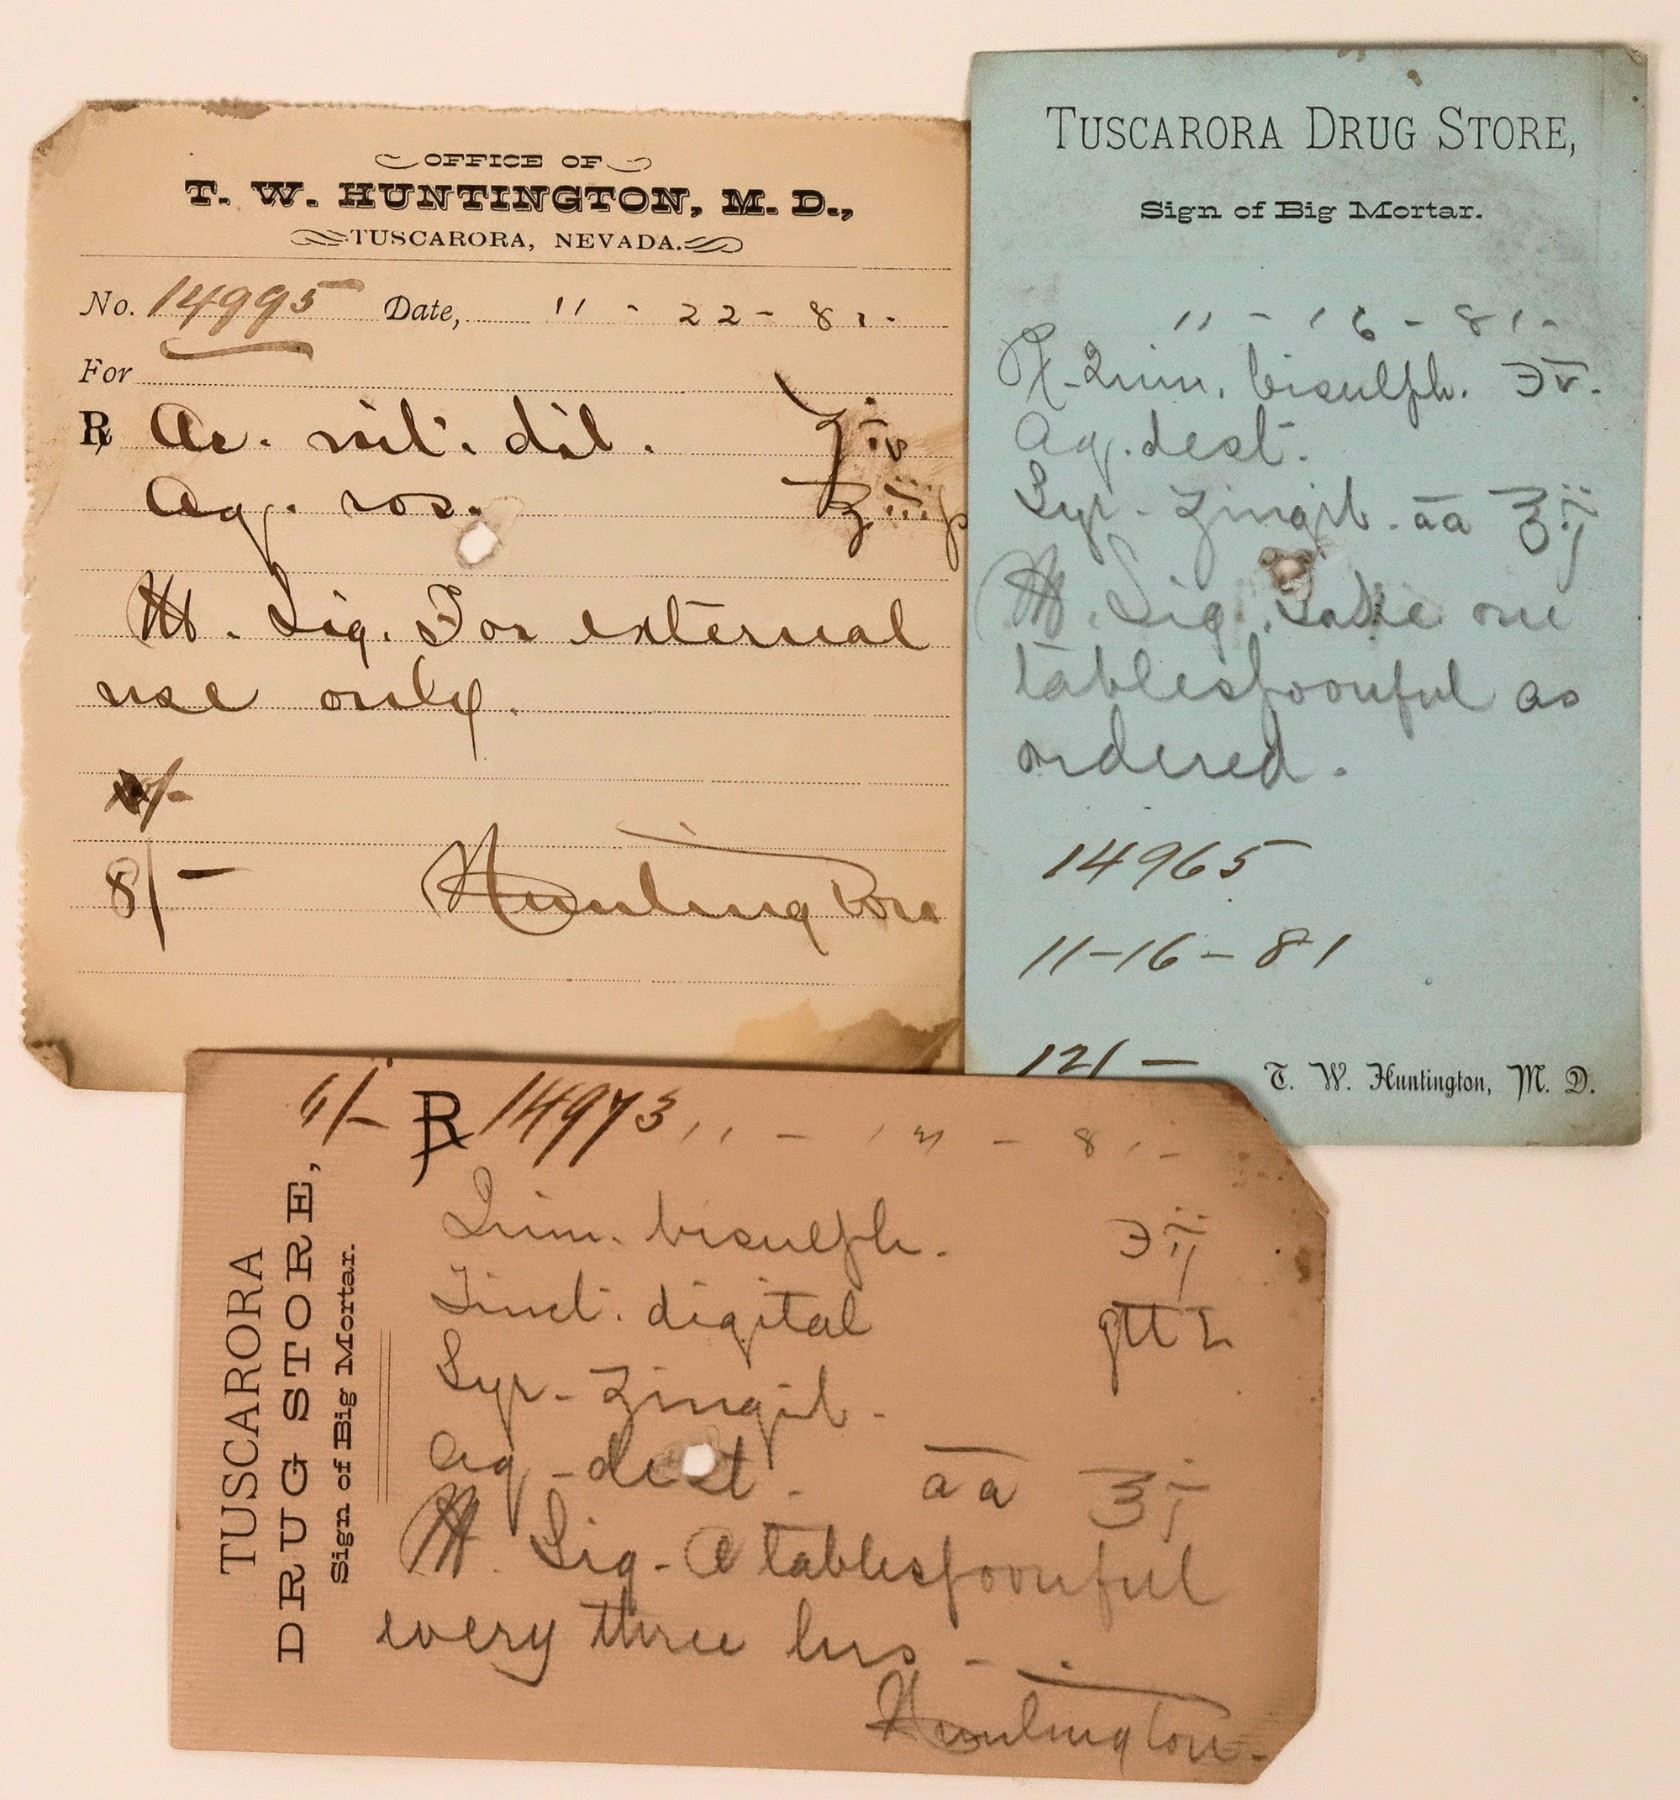 OFFICE OF
T. W. HUNTINGTON, M. D.,
TUSCARORA, NEVADA.
No. 14995 Date, 11 - 22 - 81.
For
℞ Ac. nit. dil. ʒiv
Aq. ros. ℥iiij
M. Sig. For external
use only.
8/-
Huntington
TUSCARORA DRUG STORE,
Sign of Big Mortar.
11 - 16 - 81.
℞ Quin. bisulph. ℈v.
Aq. dest.
Syr. Zingib. āā ℥ij
M. Sig. Take one
tablespoonful as
ordered.
14965
11-16-81
12/-
T. W. Huntington, M. D.
TUSCARORA
DRUG STORE,
Sign of Big Mortar.
6/- ℞ 14973 11 - - 81.
Quin. bisulph. ℈ij
Tinct. digital gtt L
Syr. Zingib.
Aq. dest. āā ℥j
M. Sig. A tablespoonful
every three hrs.
Huntington.